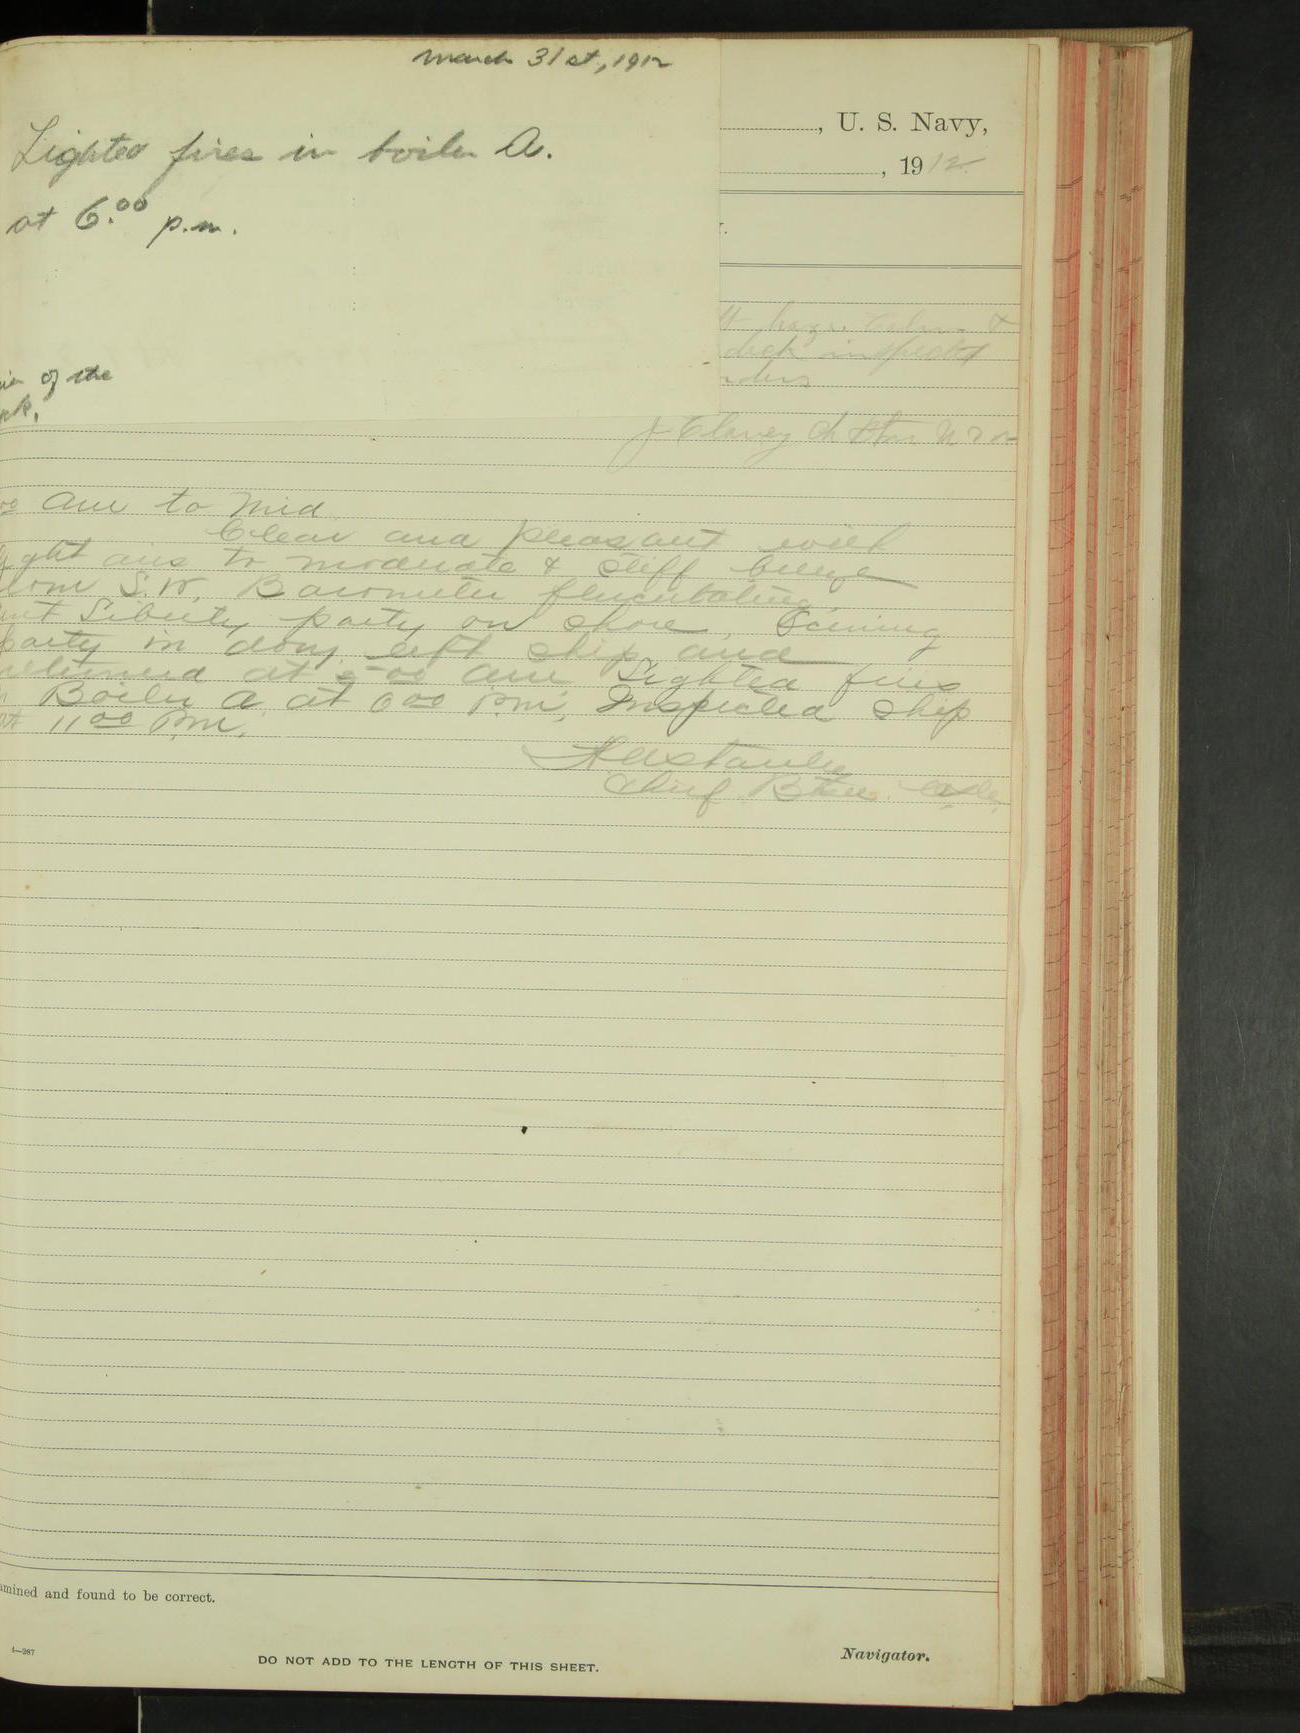 March 31st, 1912
Lighted fires in boiler A.
at 6.00 p.m.
of the
, U. S. Navy,
, 1912
haze. Calm &
inspected
J Clancy Ch Btsn U S N
00 am to Mid
Clear and pleasant with
light airs to moderate & stiff breeze
from S.W. Barometer fluctuating.
Sent Liberty party on shore,
party in dory left ship and
returned at 5 00 am Lighted fires
in Boiler A at 6 00 P.m. Inspected ship
at 11 00 P.m.
Chief Btsn
amined and found to be correct.
1—387
DO NOT ADD TO THE LENGTH OF THIS SHEET.
Navigator.